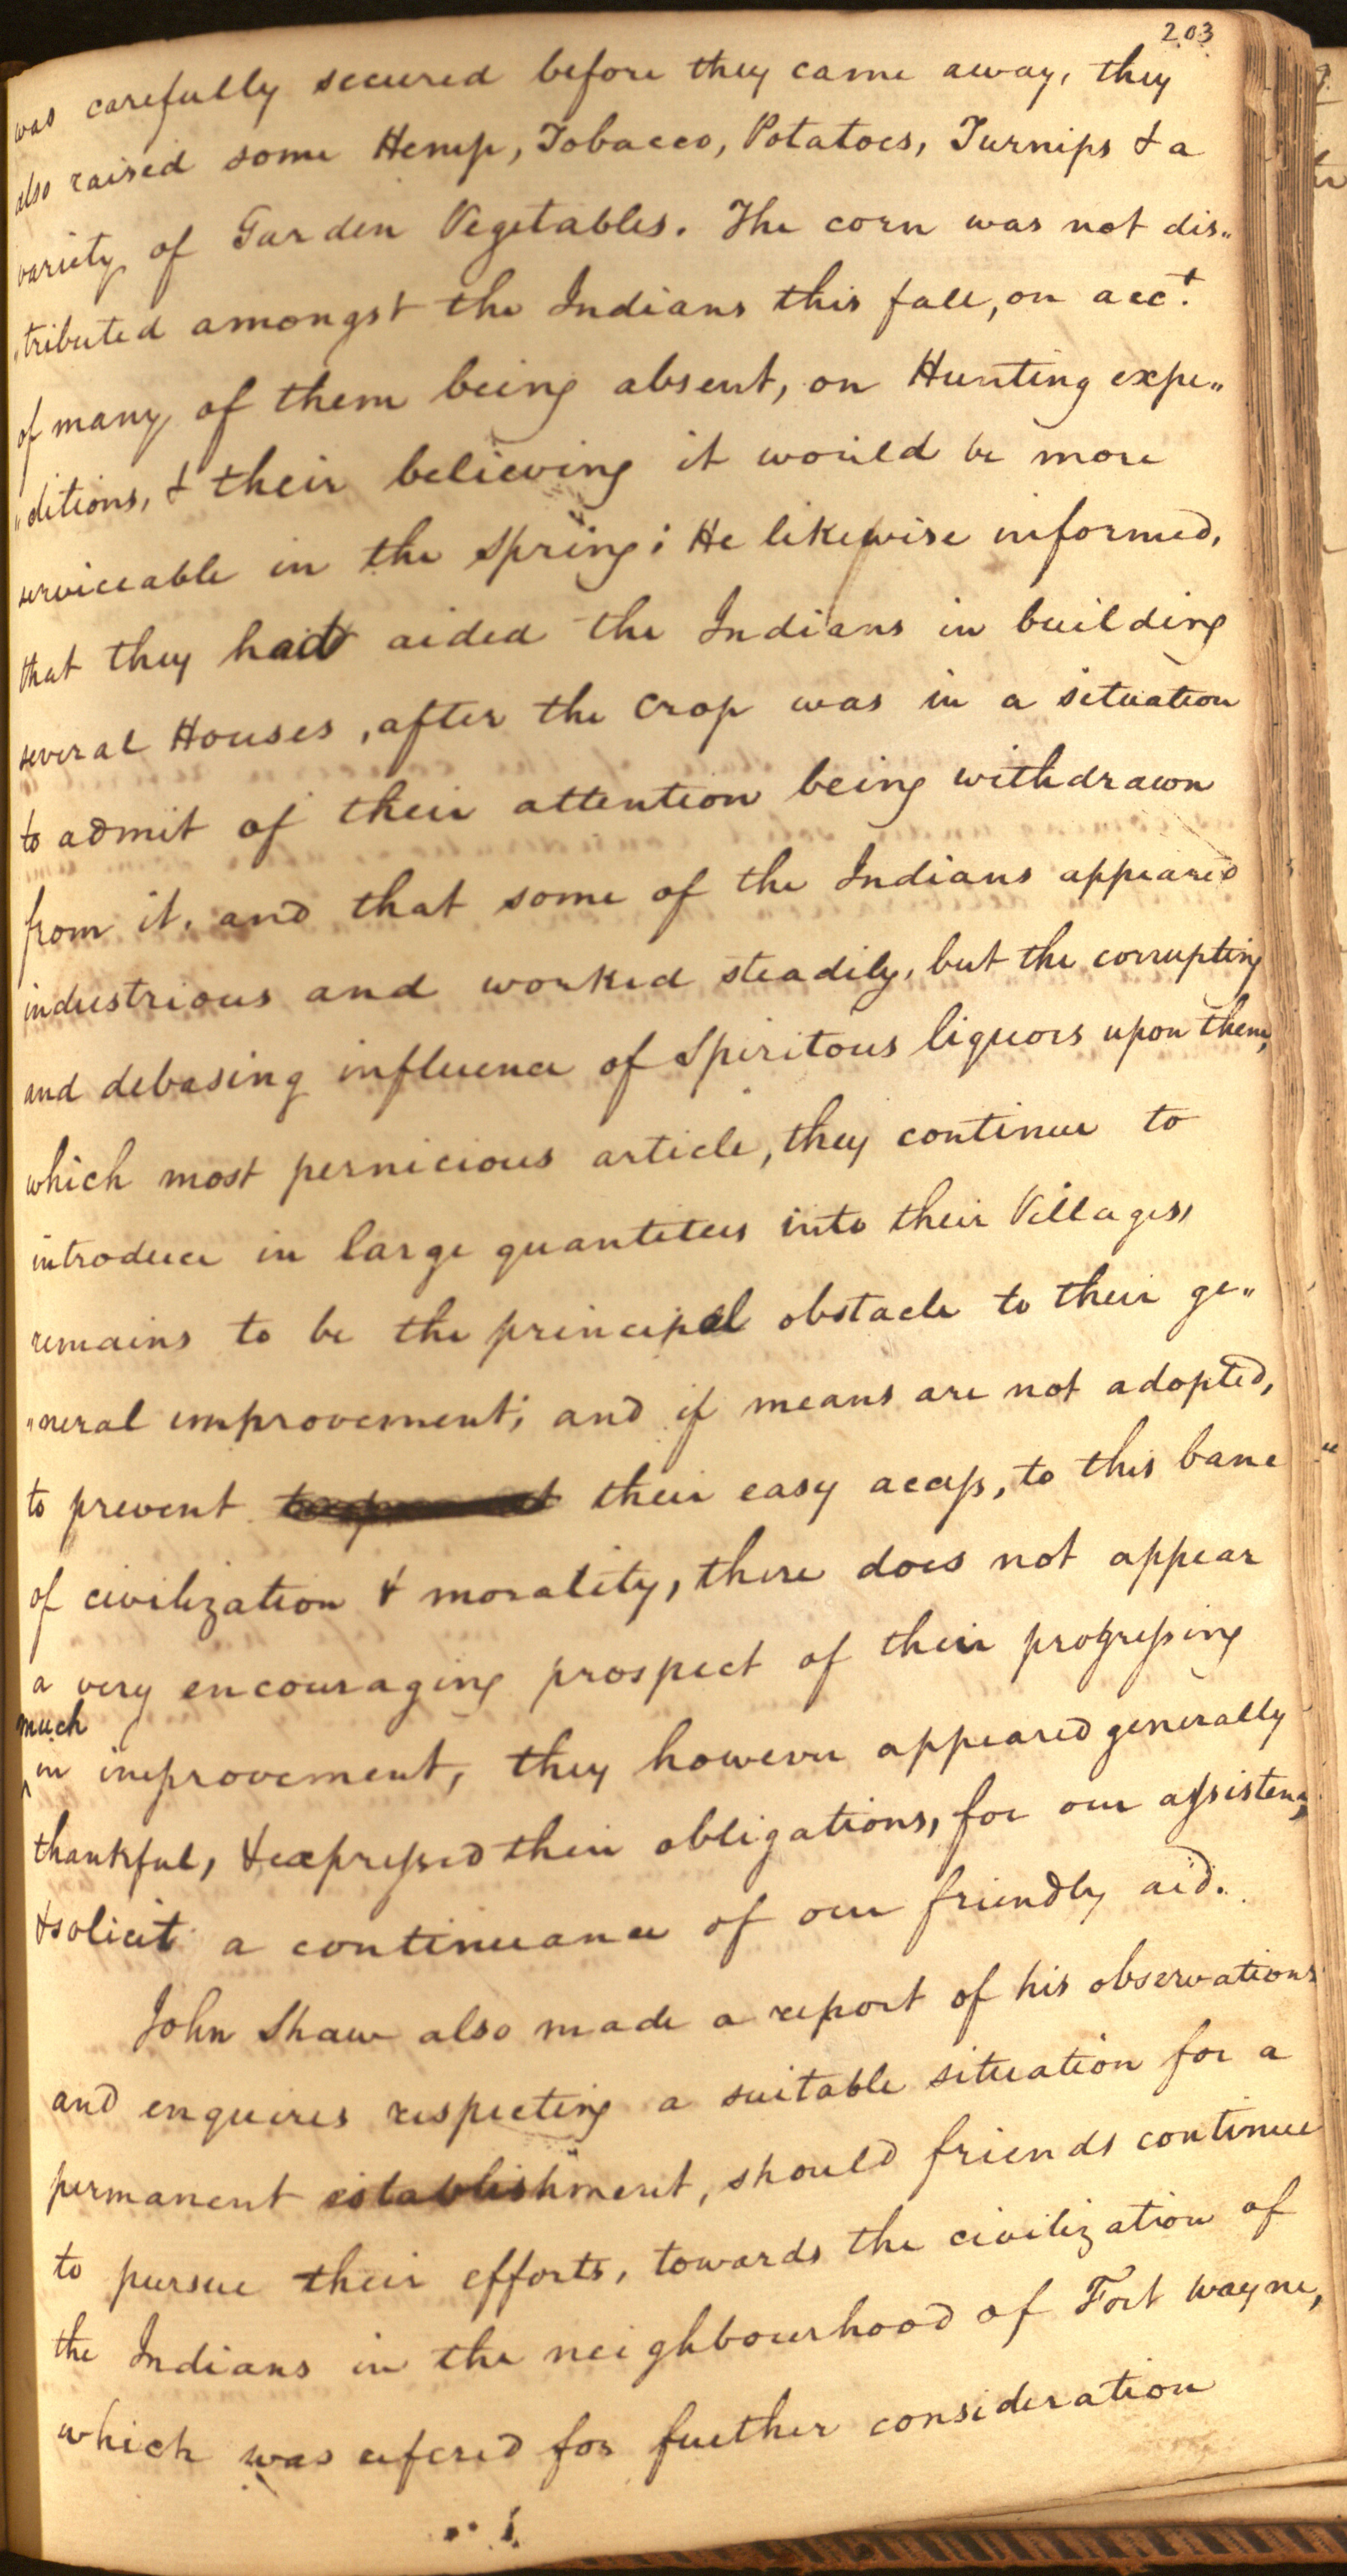 203
was carefully secured before they came away, they
also raised some Hemp, Tobacco, Potatoes, Turnips & a
variety of Garden Vegetables. The corn was not dis„
„tributed amongst the Indians this fall, on acct.
of many of them being absent, on Hunting expe„
„ditions, & their believing it would be more
serviceable in the Spring; He likewise informed,
that they had aided the Indians in building
several Houses, after the Crop was in a situation
to admit of their attention being withdrawn
from it, and that some of the Indians appeared
industrious and worked steadily, but the corrupting
and debasing influence of Spiritous liquors upon them,
which most pernicious article, they continue to
introduce in large quantitees into their Villages,
remains to be the principal obstacle to their ge„
„neral improvement; and if means are not adopted,
to prevent their easy access, to this bane
of civilization & morality, there does not appear
a very encouraging prospect of their progressing
much
^in improvement, they however appeared generally
thankful, & expressed their obligations, for our assistence,
& solicit a continuance of our friendly aid.
John Shaw also made a report of his observations
and enquires respecting a suitable situation for a
permanent establishment, should friends continue
to pursue their efforts, towards the civilization of
the Indians in the neighbourhood of Fort Wayne,
which was refered for further consideration